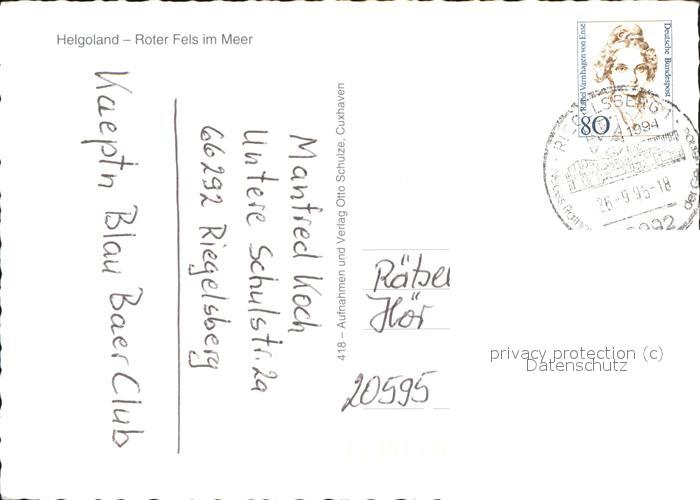 Helgoland – Roter Fels im Meer
Kaeptn Blau Baer Club
Manfred Koch
Untere Schulstr. 2a
66292 Riegelsberg
418 – Aufnahmen und Verlag Otto Schulze, Cuxhaven
Rätsel
Hör
20595
Rahel Varnhagen von Ense
Deutsche Bundespost
80
RIEGELSBERG 1
1994
26-9.95-18
privacy protection (c)
Datenschutz